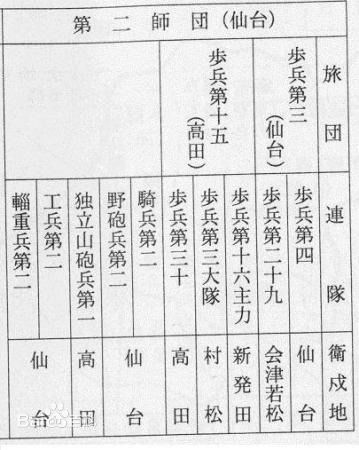 第二師団(仙台)
旅団
歩兵第三
(仙台)
歩兵第十五
(高田)
連隊
歩兵第四
歩兵第二十九
歩兵第十六主力
歩兵第三大隊
歩兵第三十
騎兵第二
野砲兵第二
独立山砲兵第一
工兵第二
輜重兵第二
衛戍地
仙台
会津若松
新発田
村松
高田
仙台
高田
仙台